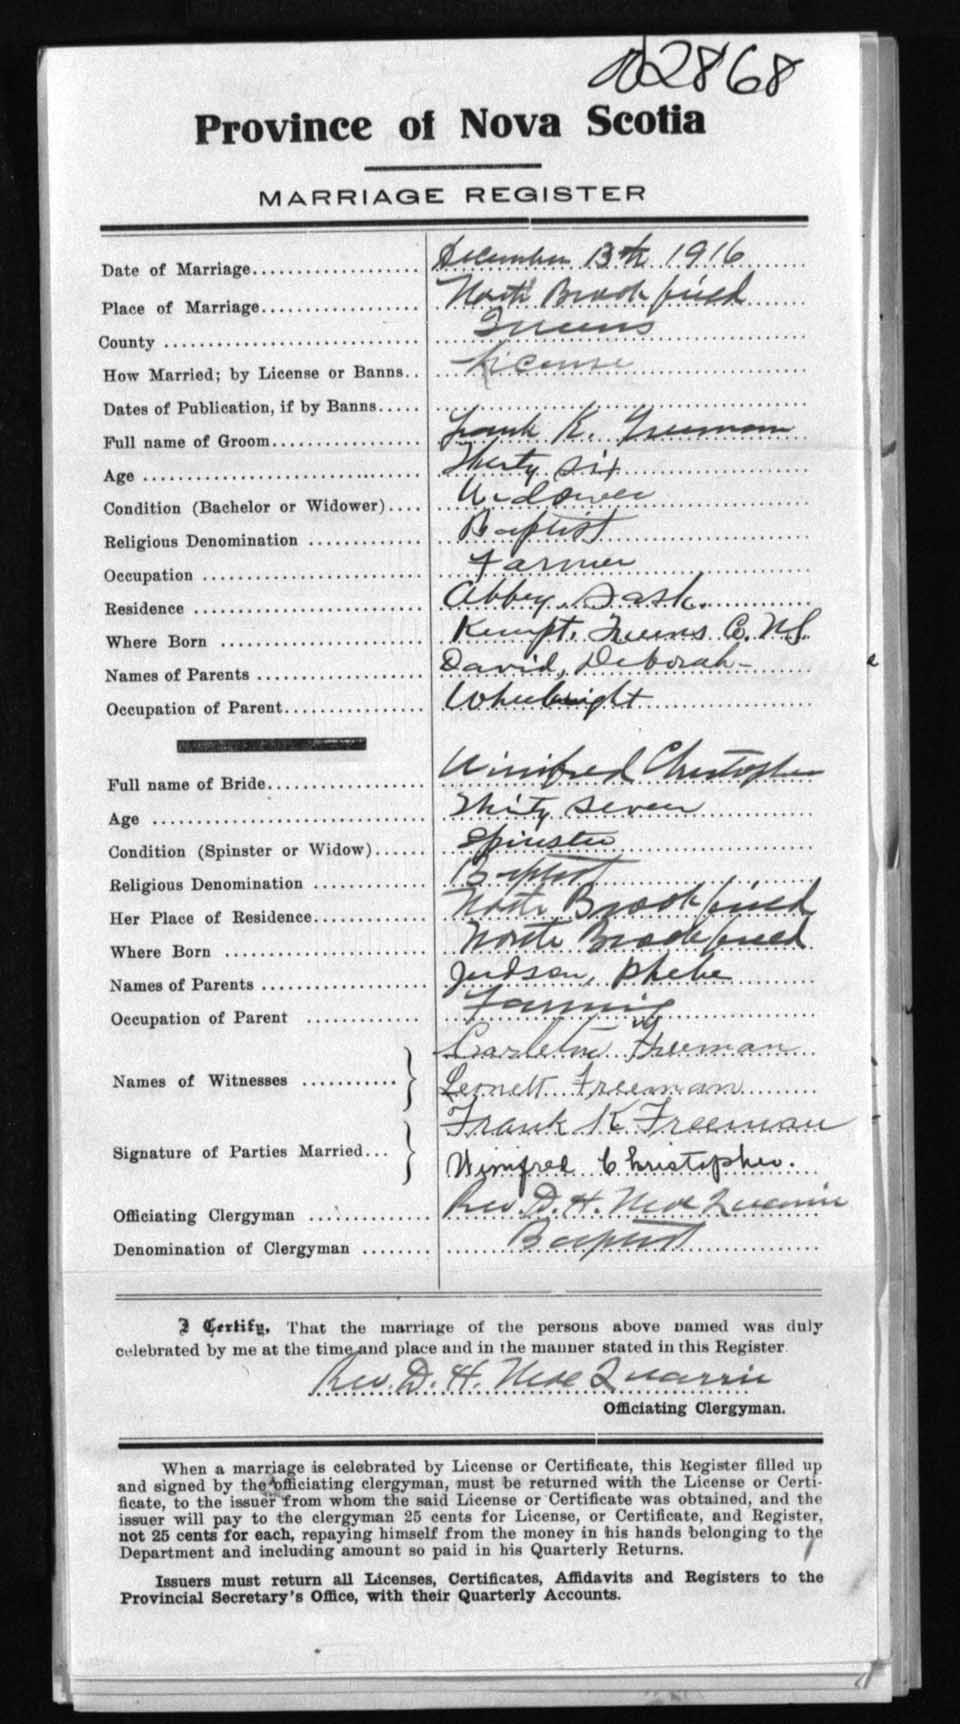 2868
Province of Nova Scotia
MARRIAGE REGISTER
Date of Marriage.................... December 13th 1916
Place of Marriage................... North Brookfield
County ............................. Queens
How Married; by License or Banns.. License
Dates of Publication, if by Banns.....
Full name of Groom.................. Frank K. Freeman
Age ................................ Thirty six
Condition (Bachelor or Widower).... Widower
Religious Denomination ............. Baptist
Occupation ......................... Farmer
Residence .......................... Abbey, Sask.
Where Born ......................... Kempt, Queens Co. N.S.
Names of Parents ................... David, Deborah
Occupation of Parent................ Wheelwright
Full name of Bride.................. Winifred Christopher
Age ................................ Thirty seven
Condition (Spinster or Widow)...... Spinster
Religious Denomination ............. Baptist
Her Place of Residence.............. North Brookfield
Where Born ......................... North Brookfield
Names of Parents ................... Judson, Phebe
Occupation of Parent ............... Farming
Names of Witnesses ........... } Carleton Freeman
Freeman
Signature of Parties Married... } Frank K Freeman
Winifred Christopher.
Officiating Clergyman .............. Rev. D. H. MacQuarrie
Denomination of Clergyman ........ Baptist
I Certify, That the marriage of the persons above named was duly
celebrated by me at the time and place and in the manner stated in this Register
Rev. D. H. MacQuarrie
Officiating Clergyman.
When a marriage is celebrated by License or Certificate, this Register filled up
and signed by the officiating clergyman, must be returned with the License or Certi-
ficate, to the issuer from whom the said License or Certificate was obtained, and the
issuer will pay to the clergyman 25 cents for License, or Certificate, and Register,
not 25 cents for each, repaying himself from the money in his hands belonging to the
Department and including amount so paid in his Quarterly Returns.
Issuers must return all Licenses, Certificates, Affidavits and Registers to the
Provincial Secretary's Office, with their Quarterly Accounts.